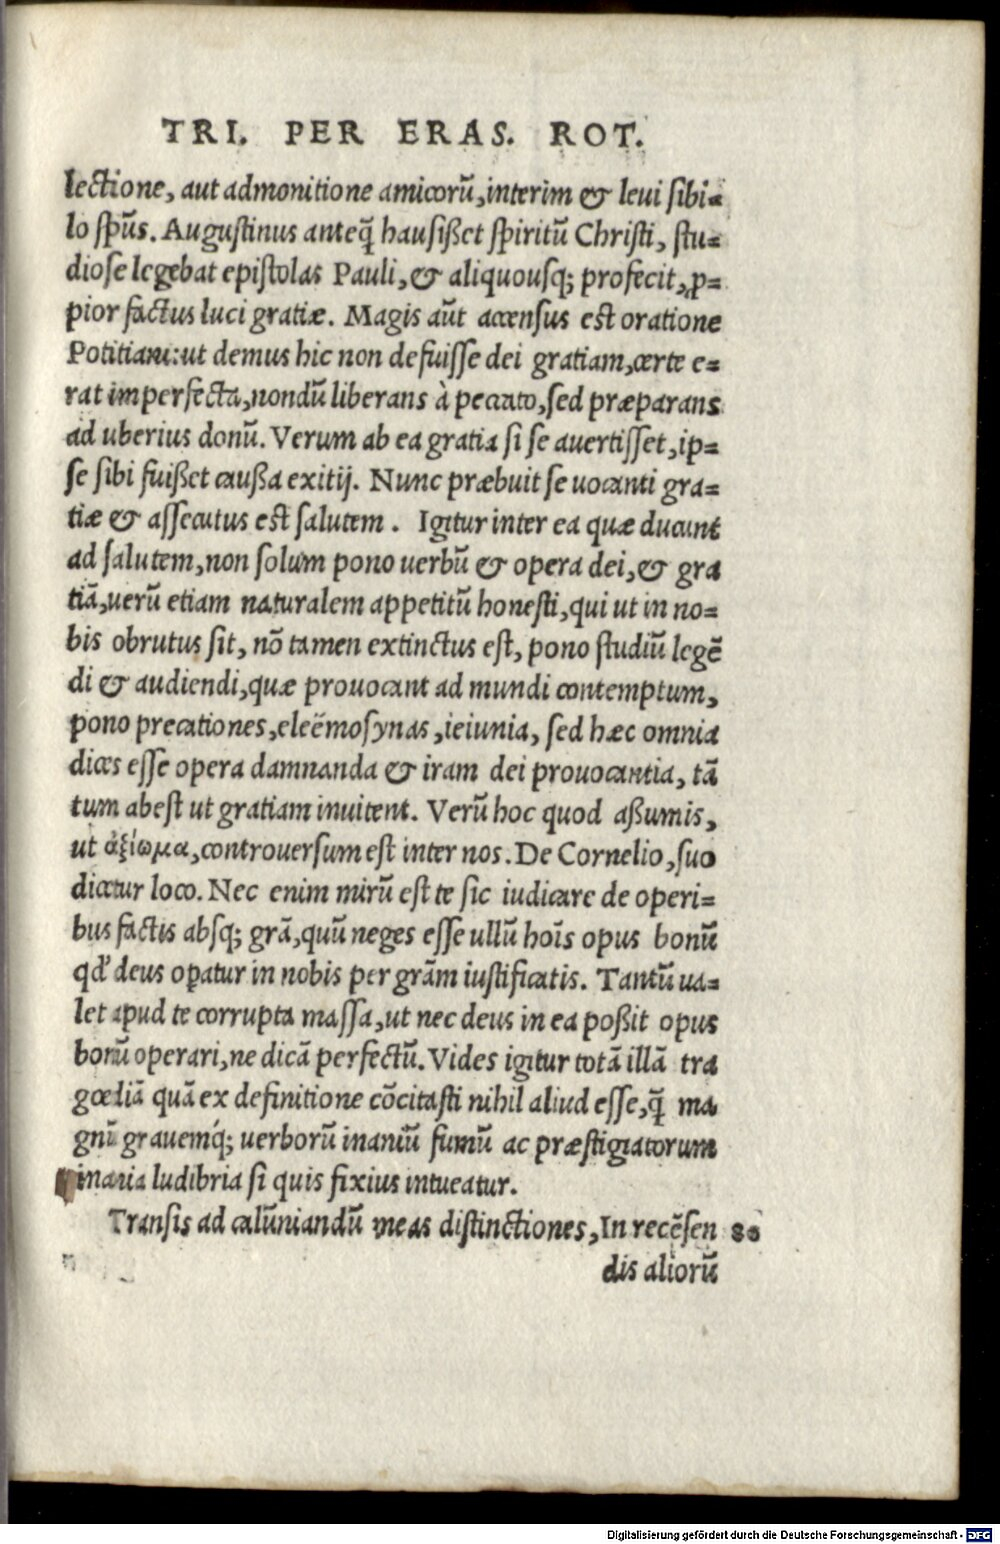 TRI. PER ERAS. ROT.
lectione, aut admonitione amicorũ, interim & leui sibi=
lo spũs. Augustinus anteq̃ hausißet spiritũ Christi, stu=
diose legebat epistolas Pauli, & aliquousq; profecit, ꝓ=
pior factus luci gratiæ. Magis aũt accensus est oratione
Potitiani: ut demus hic non defuisse dei gratiam, certe e=
rat imperfecta, nondũ liberans à peccato, sed præparans
ad uberius donũ. Verum ab ea gratia si se auertisset, ip=
se sibi fuißet caußa exitij. Nunc præbuit se uocanti gra=
tiæ & assecutus est salutem. Igitur inter ea quæ ducunt
ad salutem, non solum pono uerbũ & opera dei, & gra
tiã, uerũ etiam naturalem appetitũ honesti, qui ut in no=
bis obrutus sit, nõ tamen extinctus est, pono studiũ legẽ
di & audiendi, quæ prouocant ad mundi contemptum,
pono precationes, eleëmosynas, ieiunia, sed hæc omnia
dices esse opera damnanda & iram dei prouocantia, tã
tum abest ut gratiam inuitent. Verũ hoc quod aßumis,
ut ἀξίωμα, controuersum est inter nos. De Cornelio, suo
dicetur loco. Nec enim mirũ est te sic iudicare de operi=
bus factis absq; grã, quũ neges esse ullũ hoĩs opus bonũ
qđ deus oꝑatur in nobis per grãm iustificatis. Tantũ ua=
let apud te corrupta massa, ut nec deus in ea poßit opus
bonũ operari, ne dicã perfectũ. Vides igitur totã illã tra
gœdiã quã ex definitione cõcitasti nihil aliud esse, q̃ ma
gnũ grauemq́; uerborũ inaniũ fumũ ac præstigiatorum
inania ludibria si quis fixius intueatur.
Transis ad calũniandũ meas distinctiones, In recẽsen 80
dis aliorũ
Digitalisierung gefördert durch die Deutsche Forschungsgemeinschaft - DFG